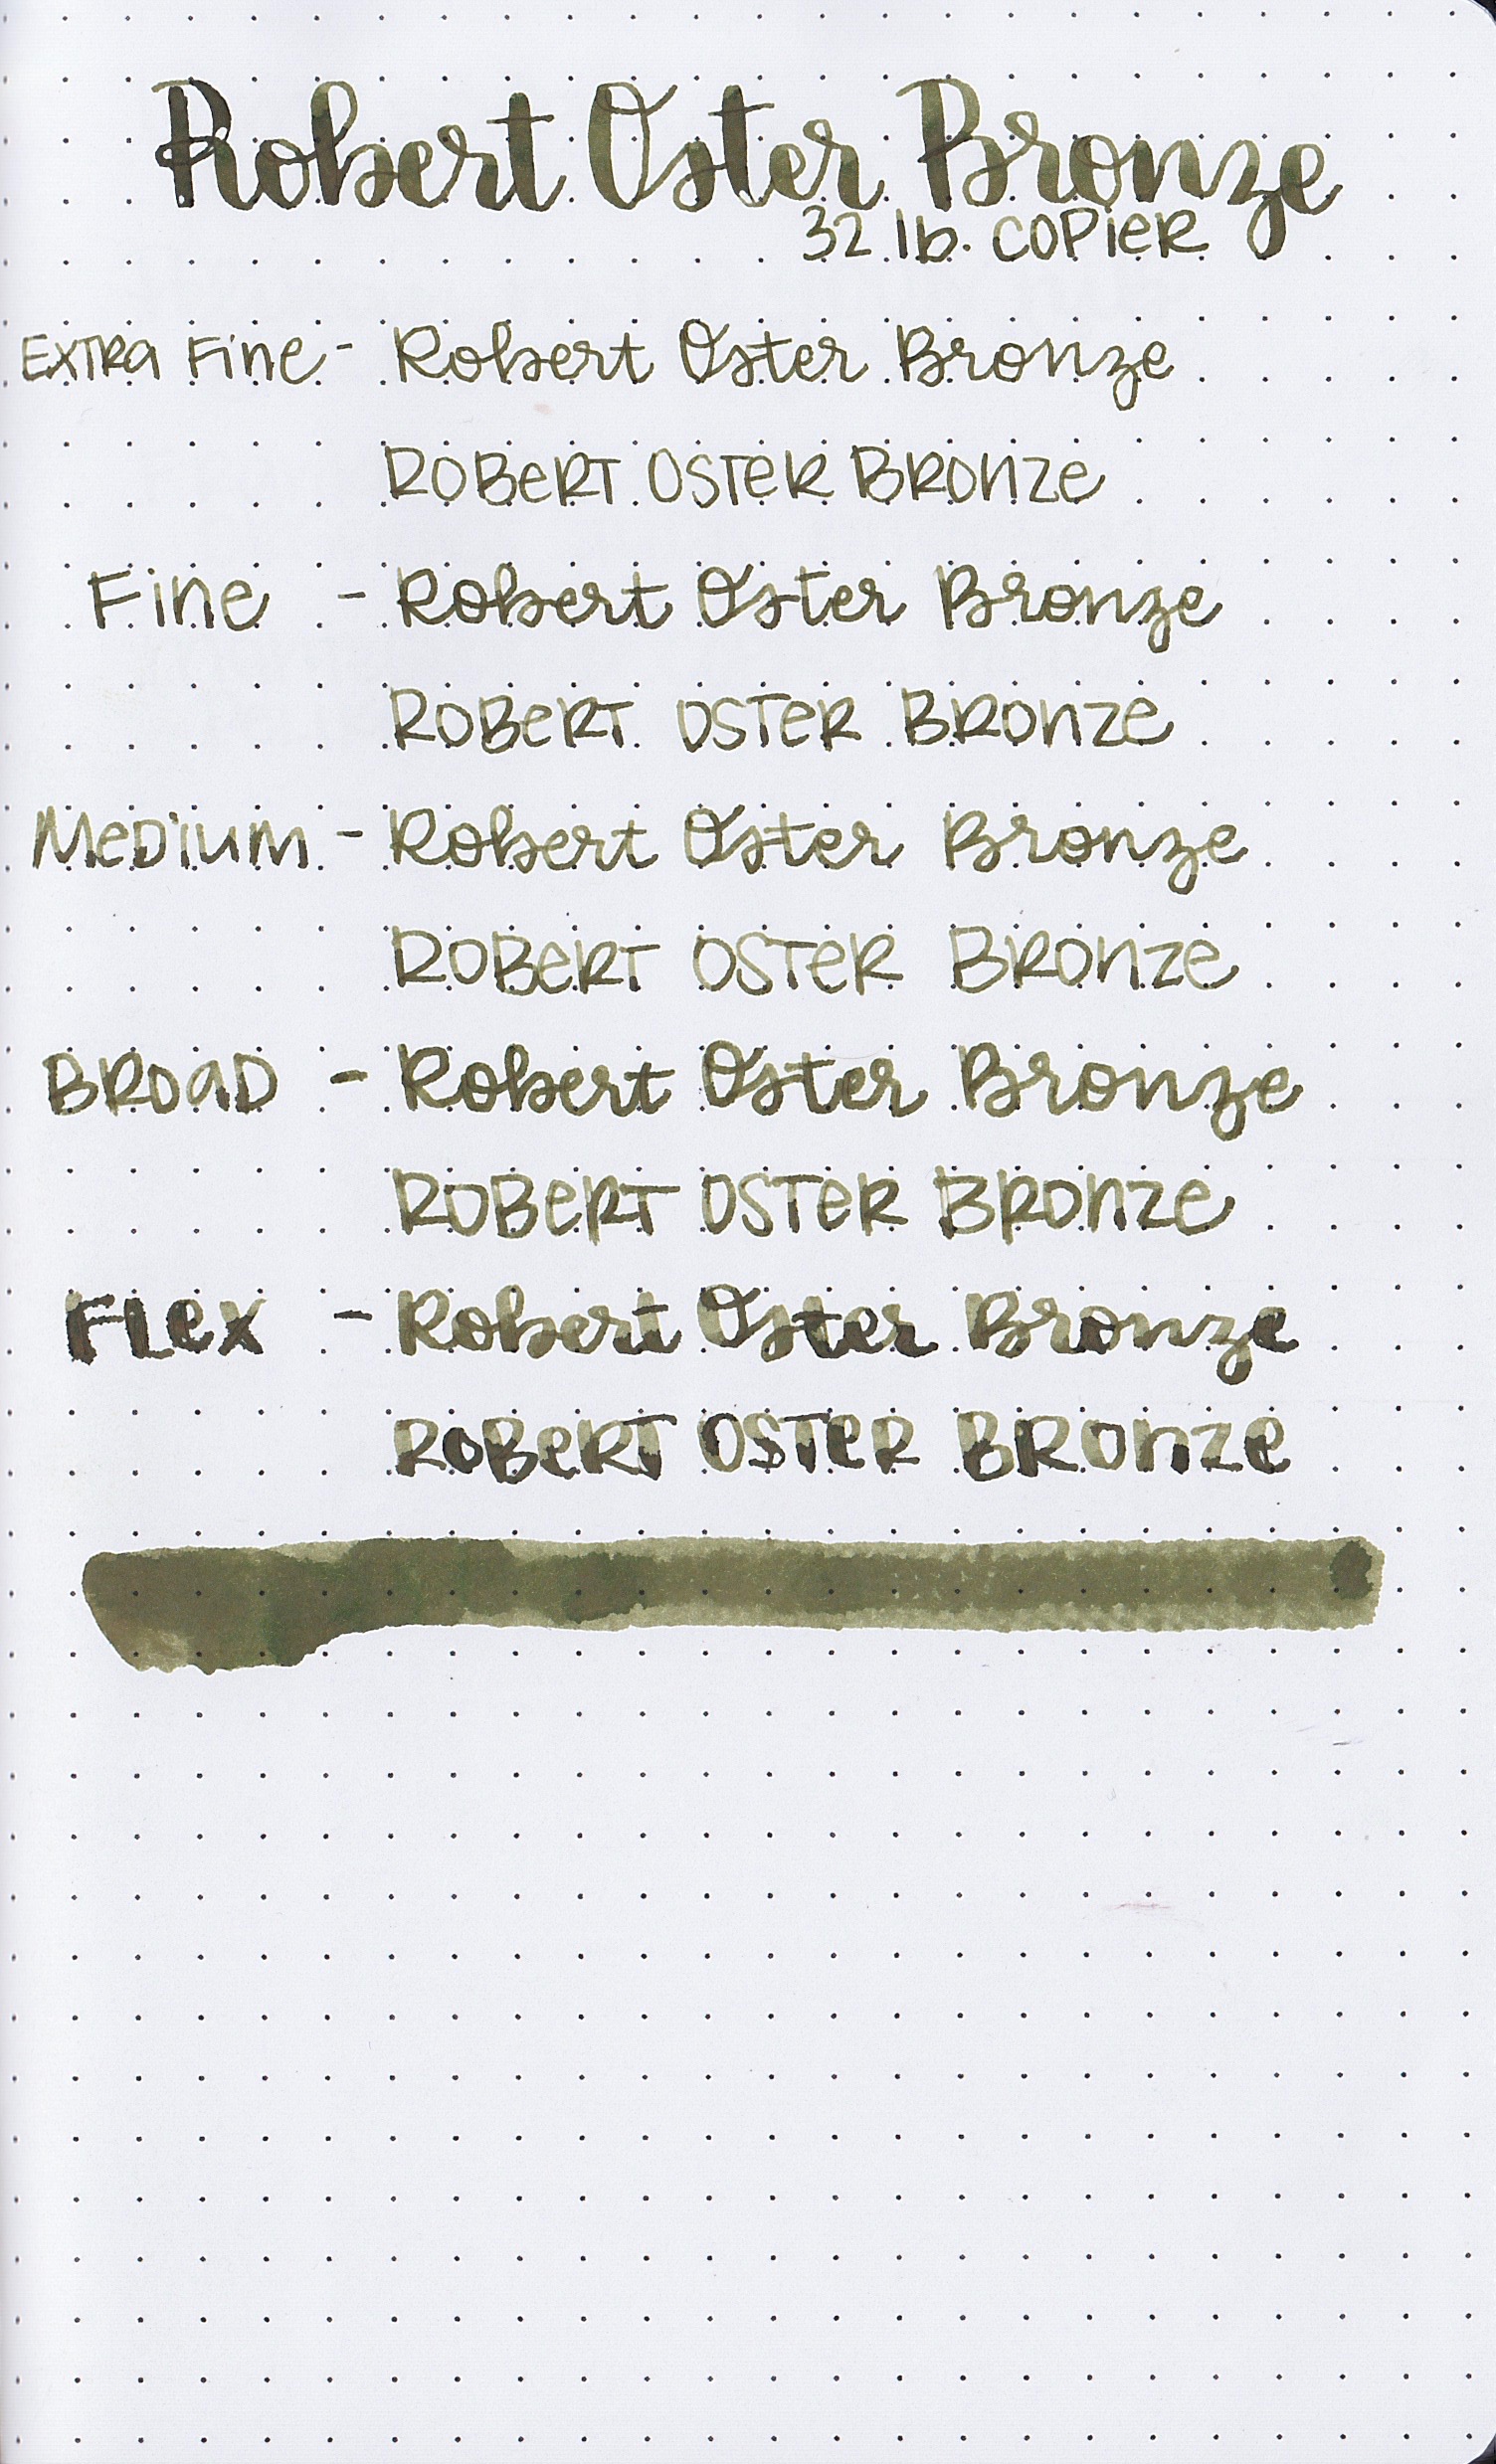 Robert Oster Bronze
32 lb. COPIER
EXTRA Fine - Robert Oster Bronze
ROBeRT OSTeR BRonze
Fine - Robert Oster Bronze
ROBeRT OSTeR BRonze
MeDium - Robert Oster Bronze
ROBeRT OSTeR BRonze
BRoaD - Robert Oster Bronze
ROBeRT OSTeR BRonze
FLex - Robert Oster Bronze
ROBeRT OSTeR BRonze